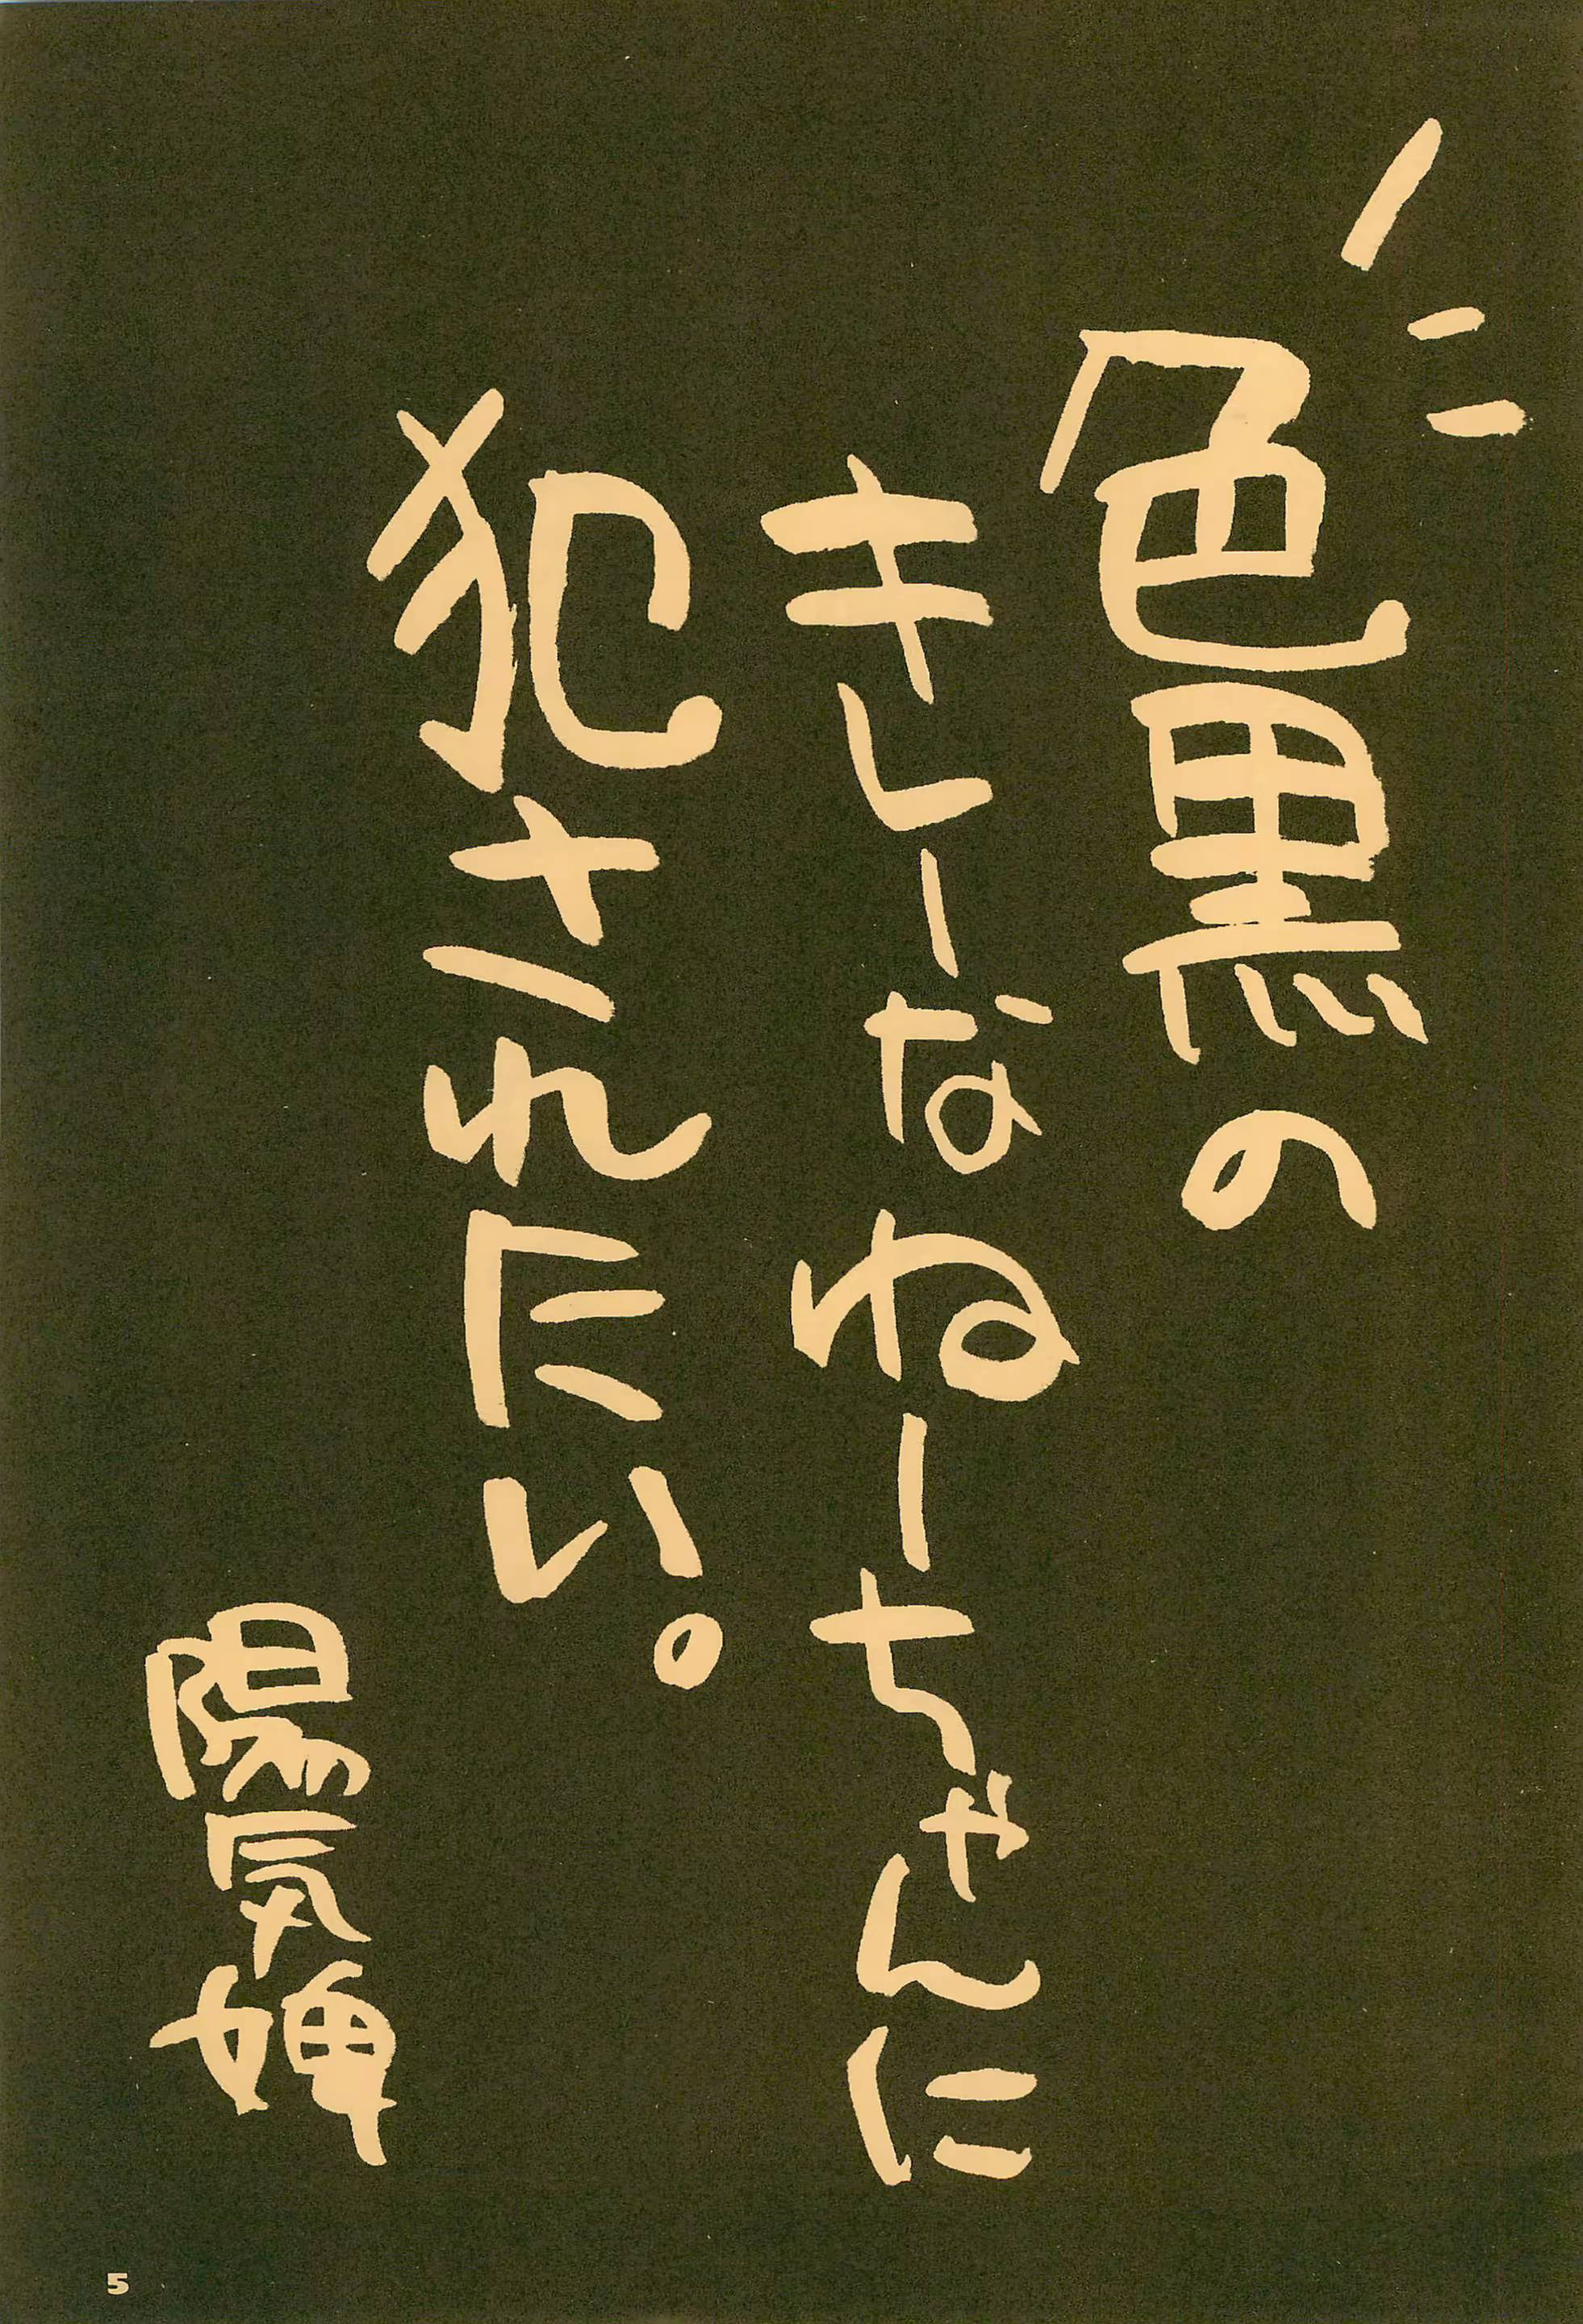 色黒の
きしーなねーちゃんに
犯されたい。
陽気婢
5